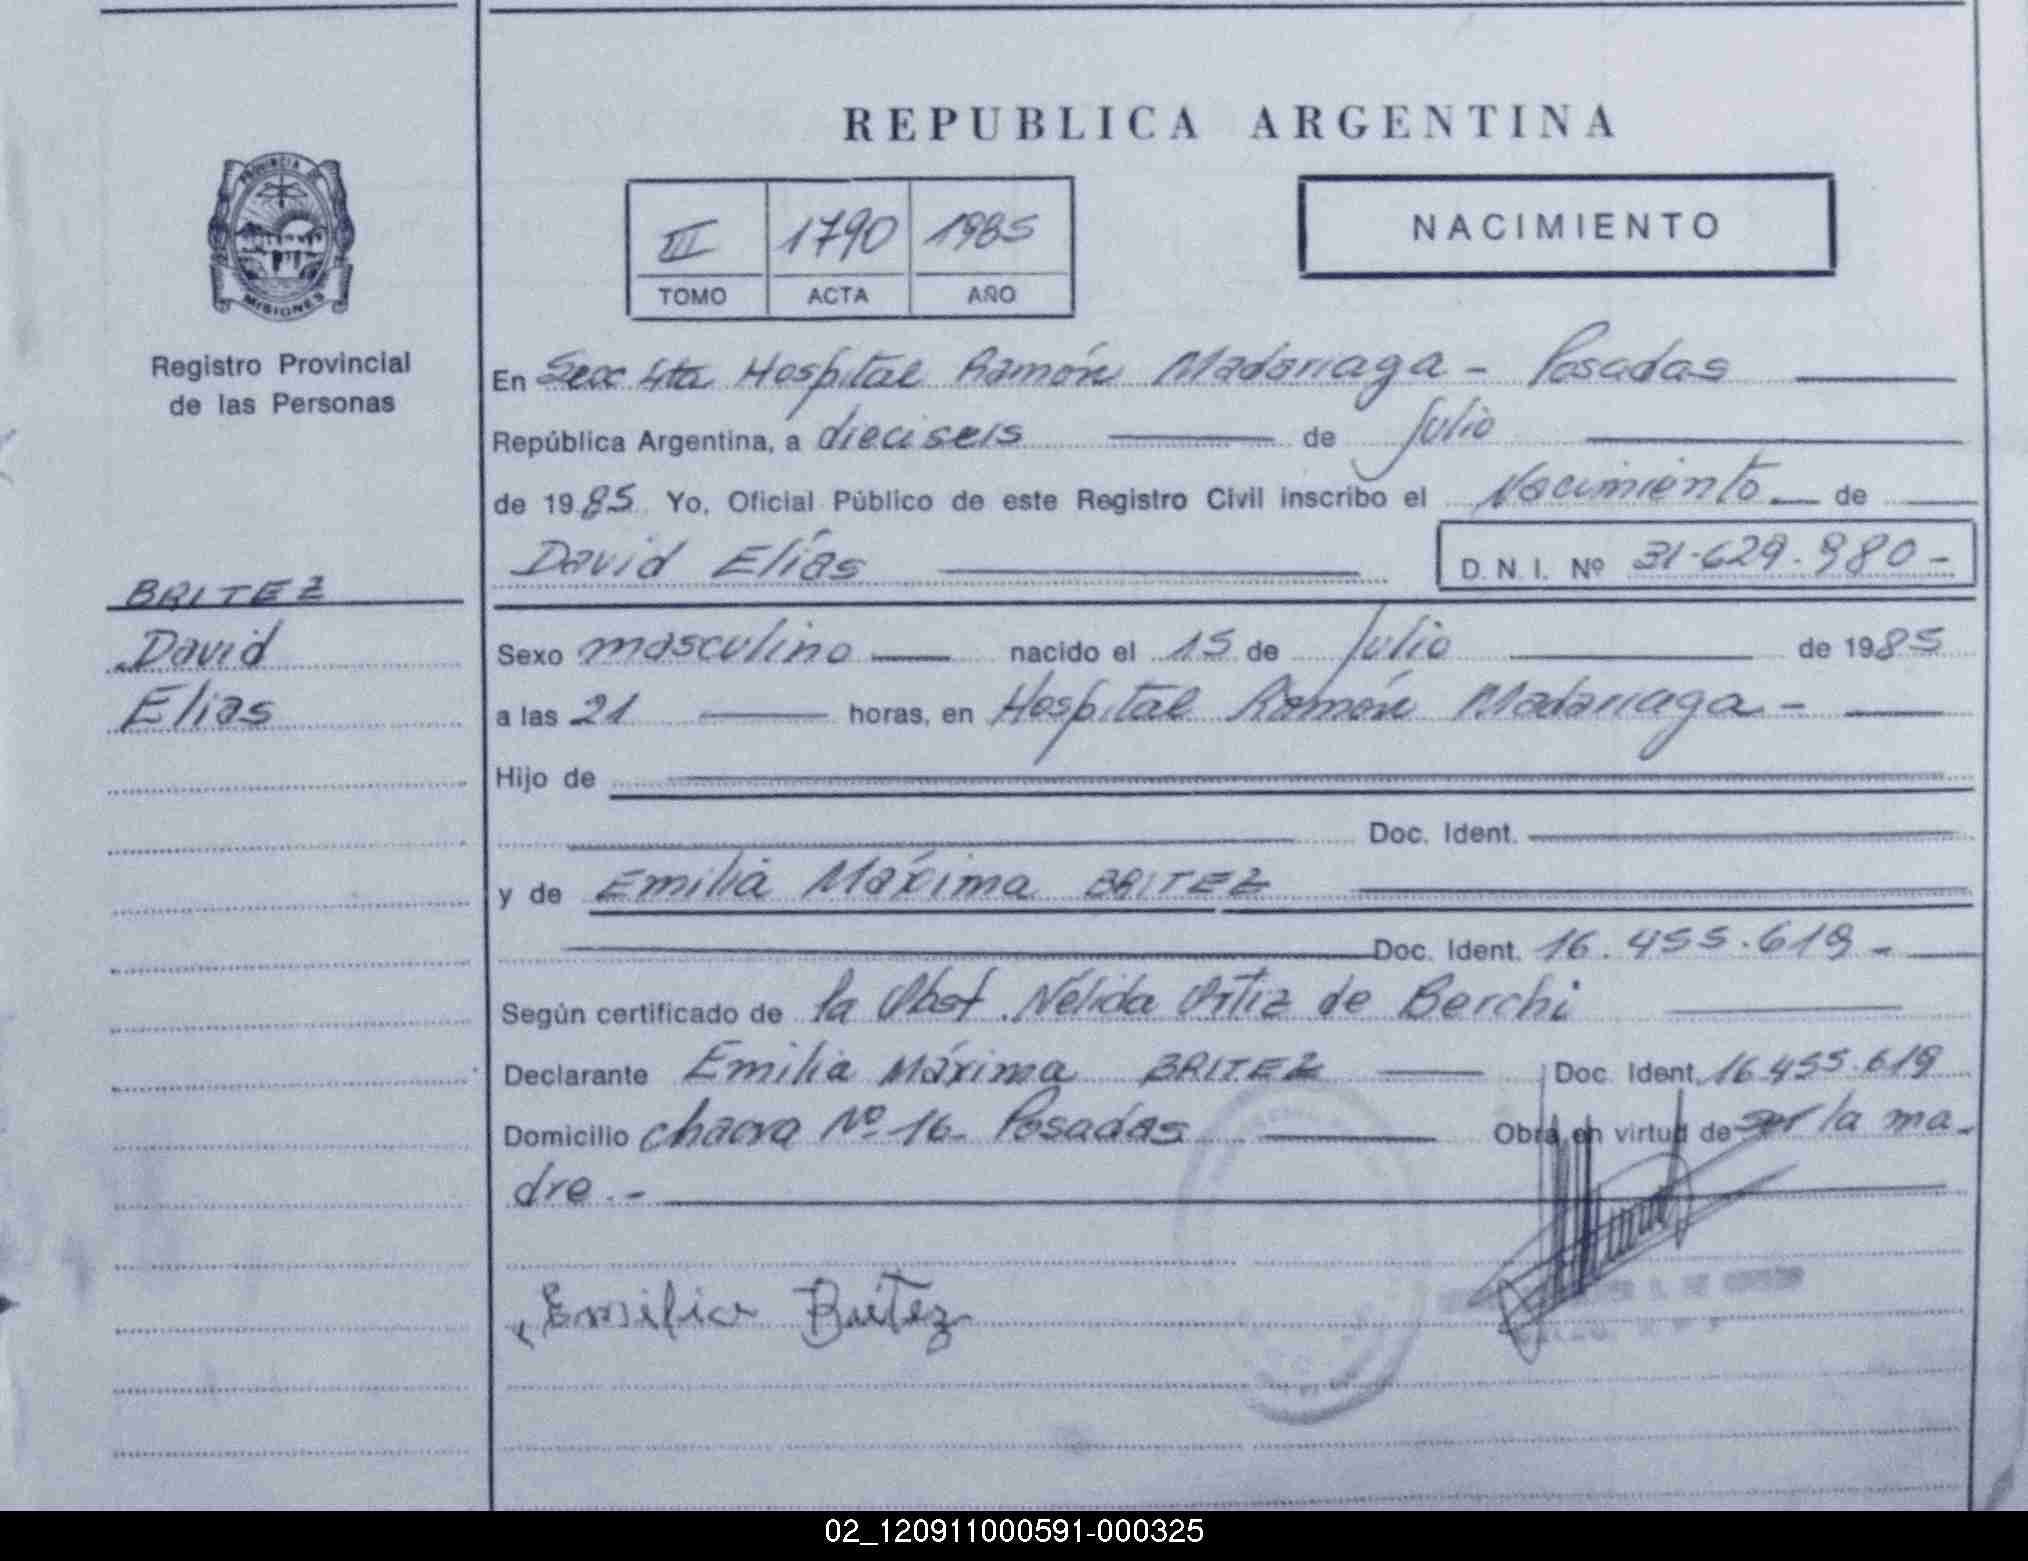 REPUBLICA ARGENTINA
PROVINCIA DE
MISIONES
Registro Provincial
de las Personas
III 1790 1985
TOMO ACTA AÑO
NACIMIENTO
En Hospital Ramón Madariaga - Posadas
República Argentina, a dieciseis de Julio
de 1985 Yo, Oficial Público de este Registro Civil inscribo el Nacimiento de
David Elías D. N. I. Nº 31.629.980-
BRITEZ
David
Elias
Sexo masculino nacido el 15 de Julio de 1985
a las 21 horas, en Hospital Ramón Madariaga -
Hijo de
Doc. Ident.
y de Emilia Máxima BRITEZ
Doc. Ident. 16.455.619-
Según certificado de la Obst. Nélida Ortiz de Berchi
Declarante Emilia Máxima BRITEZ Doc. Ident. 16.455.619
Domicilio chacra Nº 16- Posadas Obra en virtud de ser la ma-
dre.-
Emilia Britez
02_120911000591-000325